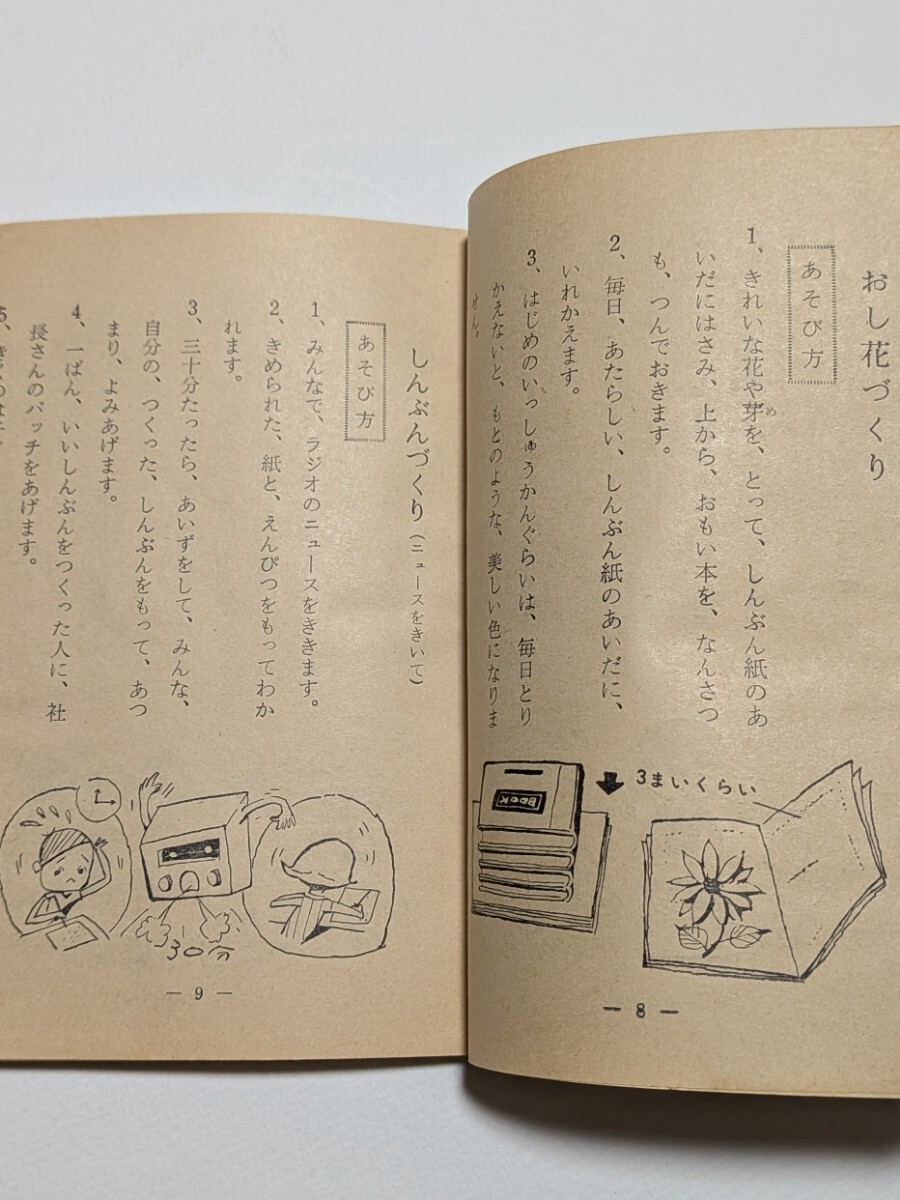 おし花づくり
あそび方
1、きれいな花や芽を、とって、しんぶん紙のあ
め
いだにはさみ、上から、おもい本を、なんさつ
も、つんでおきます。
2、毎日、あたらしい、しんぶん紙のあいだに、
いれかえます。
3、はじめのいっしゅうかんぐらいは、毎日とり
かえないと、もとのような、美しい色になりま
せん。
BOOK
3まいくらい
— 8 —
しんぶんづくり(ニュースをきいて)
あそび方
1、みんなで、ラジオのニュースをききます。
2、きめられた、紙と、えんぴつをもってわか
れます。
3、三十分たったら、あいずをして、みんな、
自分の、つくった、しんぶんをもって、あつ
まり、よみあげます。
4、一ばん、いいしんぶんをつくった人に、社
長さんのバッチをあげます。
5、
30分
— 9 —